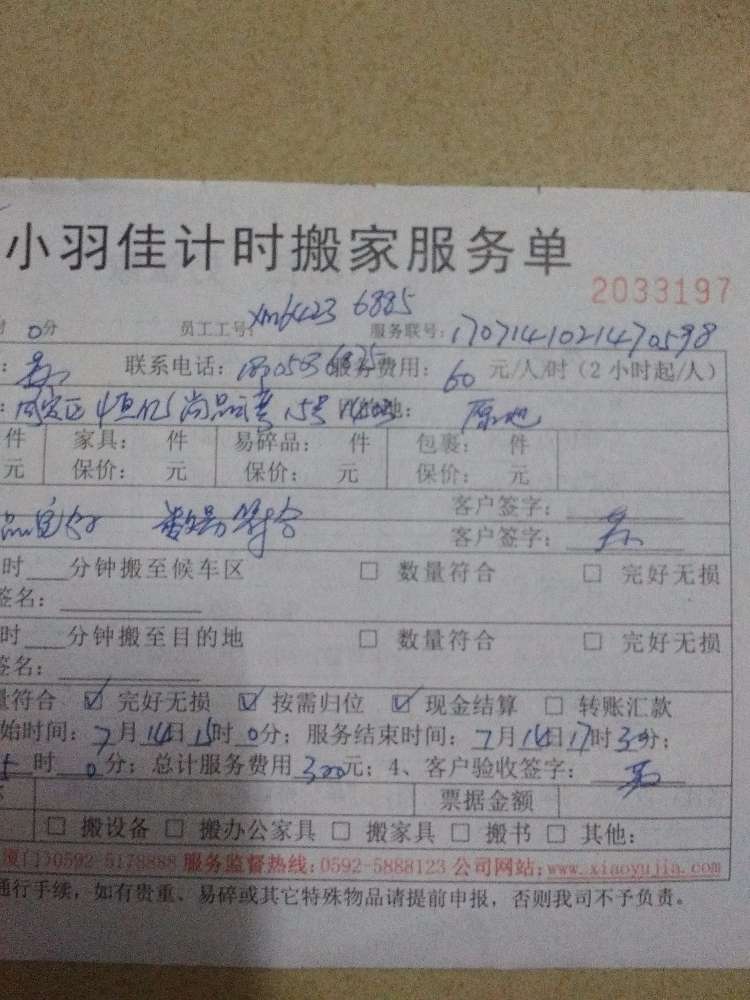 小羽佳计时搬家服务单
2033197
时 0分 员工工号: xm6423 6885 服务联号: 1707141021470598
: 联系电话: 服务费用: 60 元/人/时（2小时起/人）
: 同安区 尚品 15号 : 原地
件 家具: 件 易碎品: 件 包裹: 件
元 保价: 元 保价: 元 保价: 元
客户签字:
品完好 数量符合 客户签字:
时___分钟搬至候车区 □ 数量符合 □ 完好无损
签名:
时___分钟搬至目的地 □ 数量符合 □ 完好无损
签名:
量符合 ☑ 完好无损 ☑ 按需归位 ☑ 现金结算 □ 转账汇款
始时间: 7月14日15时0分; 服务结束时间: 7月14日17时30分;
5时0分; 总计服务费用300元; 4、客户验收签字:
票据金额
□ 搬设备 □ 搬办公家具 □ 搬家具 □ 搬书 □ 其他:
厦门)0592-5178888 服务监督热线:0592-5888123 公司网站:www.xiaoyujia.com
通行手续，如有贵重、易碎或其它特殊物品请提前申报，否则我司不予负责。